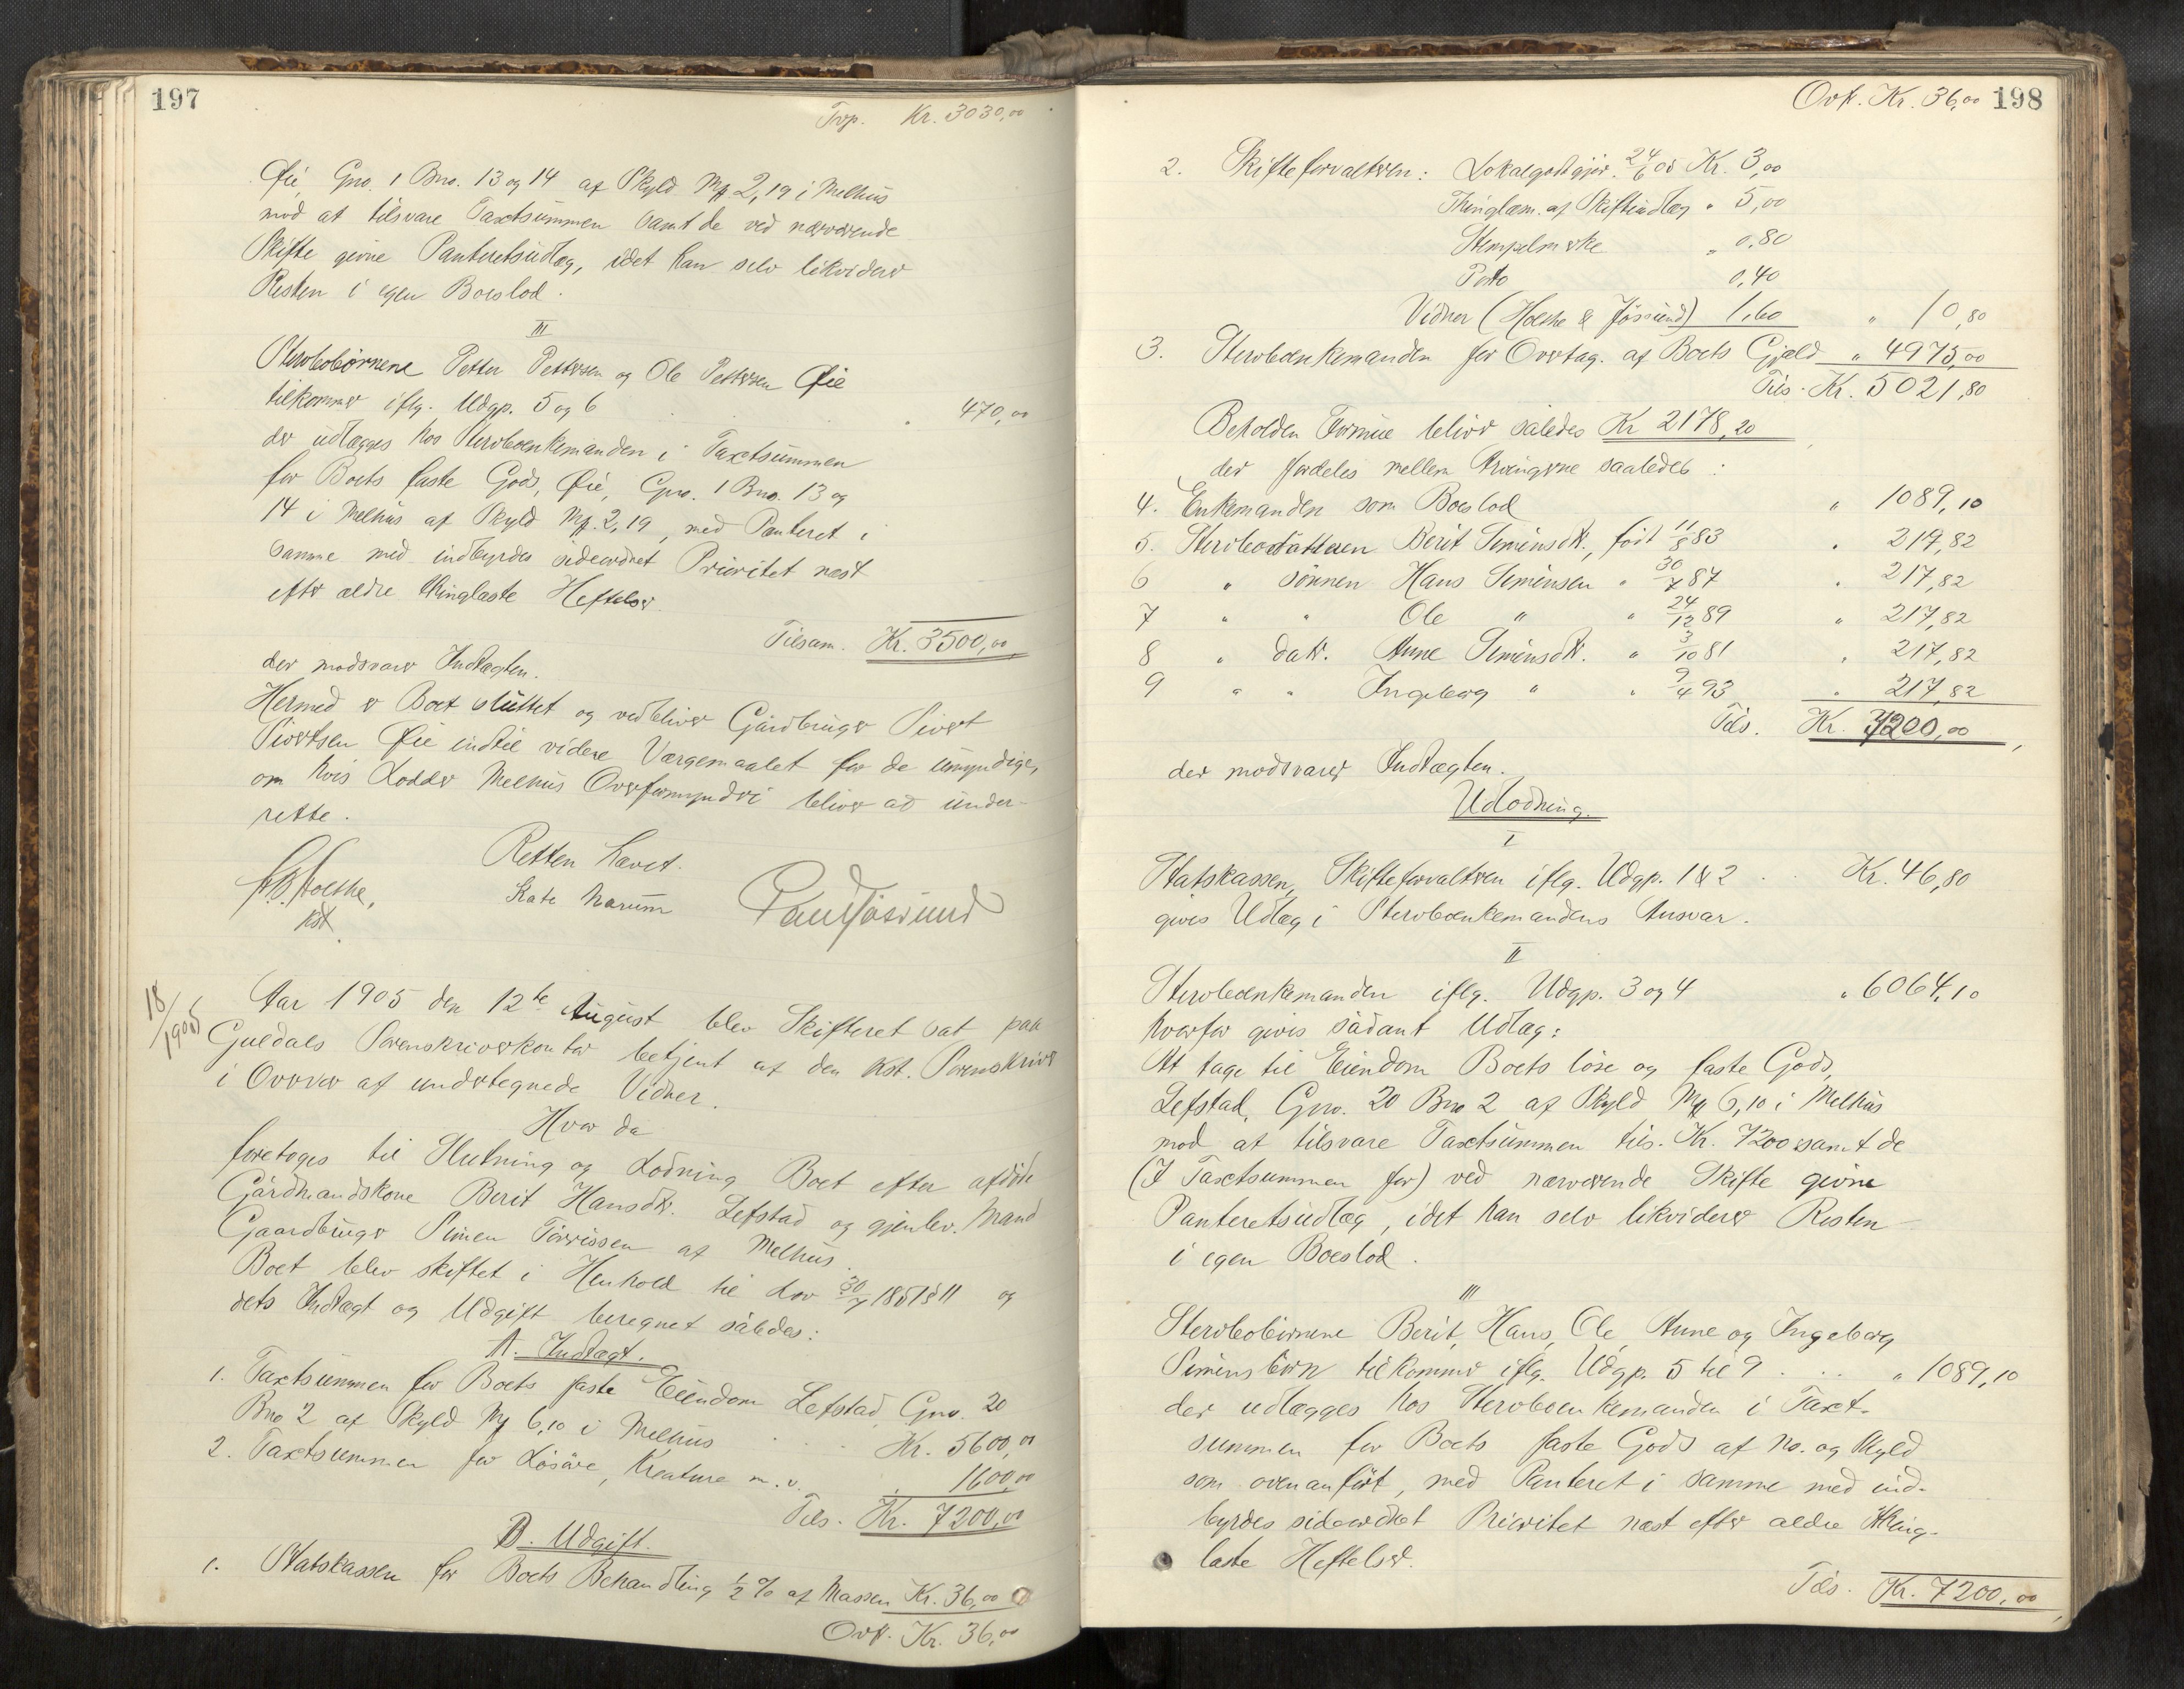 197
Trp. Kr. 3030,00
Øie, Gno. 1 Bno. 13 og 14 af Skyld Mk 2,19 i Melhus
mod at tilsvare Taxtsummen samt de ved nærværende
Skifte givne Panteretsudlæg, idet han selv likviderer
Resten i egen Boeslod.
III
Stervbobørnene Petter Pettersen og Ole Pettersen Øie
tilkommer iflg. Udgp. 5 og 6 . . " 470,00
der udlægges hos Stervboenkemanden i Taxtsummen
for Boets faste Gods, Øie, Gno. 1 Bno. 13 og
14 i Melhus af Skyld Mk. 2,19, med Panteret i
samme med indbyrdes sideordnet Prioritet næst
efter ældre thinglæste Heftelser.
Tilsam. Kr. 3500,00
der modsvarer Indtægten.
Hermed er Boet sluttet og vedbliver Gårdbruger Sivert
Sivertsen Øie indtil videre Værgemaalet for de umyndige,
om hvis Lodder Melhus Overformynderi bliver at under-
rette.
Retten hævet.
kst.
18/1905
Aar 1905 den 12te August blev Skifteret sat paa
Guldals Sorenskriverkontor betjent af den kst. Sorenskriver
i Overvær af undertegnede Vidner.
Hvor da
foretoges til Slutning og Lodning Boet efter afdøde
Gårdmandskone Berit Hansdtr. Lefstad og gjenlev. Mand
Gaardbruger Simen Tørrissen af Melhus.
Boet blev skiftet i Henhold til Lov 30/7 1851 § 11 og
dets Indtægt og Udgift beregnet således:
A. Indtægt.
1. Taxtsummen for Boets faste Eiendom Lefstad, Gno. 20
Bno 2 af Skyld Mk 6,10 i Melhus . . . Kr. 5600,00
2. Taxtsummen for Løsøre, Kreature m. v. . 1600,00
Tils. Kr. 7200,00
B. Udgift.
1. Statskassen for Boets Behandling 1/2 % af Massen Kr. 36,00
Ovf. Kr. 36,00
Ovf. Kr. 36,00 198
2. Skifteforvalteren: Lokalgodtgjør. 24/6 05 Kr. 3,00
Thinglæsn. af Skifteudlæg " 5,00
Stempelmerke " 0,80
Porto 0,40
Vidner (Holthe & Jøssund) 1,60 " 10,80
3. Stervboenkemanden for Overtag. af Boets Gjæld " 4975,00
Tils. Kr. 5021,80
Beholden Formue bliver således Kr 2178,20
der fordeles mellem Arvingerne saaledes:
4. Enkemanden som Boeslod " 1089,10
5. Stervbodatteren Berit Simensdtr., født 11/8 83 " 217,82
6 " sønnen Hans Simensen " 30/7 87 " 217,82
7 " " Ole " " 24/12 89 " 217,82
8 " datr. Anne Simensdtr. " 3/10 81 " 217,82
9 " " Ingeborg " " 9/4 93 " 217,82
Tils. Kr. 7200,00
der modsvarer Indtægten.
Udlodning.
I
Statskassen, Skifteforvalteren iflg. Udgp. 1 & 2 . . Kr. 46,80
gives Udlæg i Stervboenkemandens Ansvar.
II
Stervboenkemanden iflg. Udgp. 3 og 4 " 6064,10
hvorfor gives sådant Udlæg:
At tage til Eiendom Boets løse og faste Gods,
Lefstad, Gno. 20 Bno 2 af Skyld Mk 6,10 i Melhus
mod at tilsvare Taxtsummen tils. Kr. 7200 samt de
(I Taxtsummen for) ved nærværende Skifte givne
Panteretsudlæg, idet han selv likviderer Resten
i egen Boeslod.
III
Stervbobørnene Berit, Hans, Ole, Anne og Ingeborg
Simensbørn tilkommer iflg. Udgp. 5 til 9 . . . " 1089,10
der udlægges hos Stervboenkemanden i Taxt-
summen for Boets faste Gods af No. og Skyld
som ovenanført, med Panteret i samme med ind-
byrdes sideordnet Prioritet næst efter ældre thing-
læste Heftelser.
Tils. Kr. 7200,00